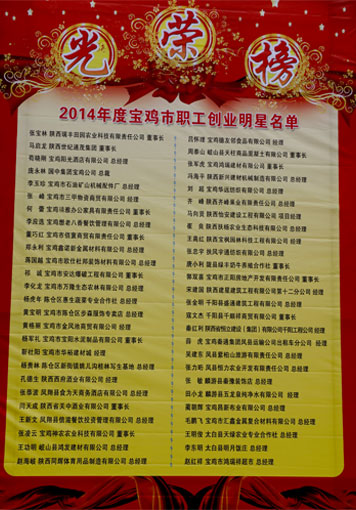 光荣榜
2014年度宝鸡市职工创业明星名单
张宝林 陕西瑞丰田园农业科技有限责任公司 董事长
马启龙 陕西世纪通茂集团 董事长
苟晓刚 宝鸡阳光酒店有限公司 总经理
饶永林 国中集团宝鸡公司 总裁
李玉琼 宝鸡市石油矿山机械配件厂 总经理
张 峰 宝鸡市三毕物资商贸有限公司 经理
何 雷 宝鸡瑞雅办公家具有限责任公司 董事长
李应选 宝鸡憨老八香餐饮管理有限公司 总经理
董巧红 宝鸡市俊董商贸有限责任公司 董事长
邓永利 宝鸡鑫诺新金属材料有限公司 总经理
蒋国越 宝鸡市欧仕杜邦装饰材料有限公司 总经理
祁 诚 宝鸡市安达爆破工程有限公司 董事长
李化龙 宝鸡市万隆生态农林有限公司 总经理
杨虎年 陈仓区惠生蔬菜专业合作社 总经理
黄宝明 宝鸡市陈仓区步森服饰专卖店 总经理
黄格丽 宝鸡市金凤池商贸有限公司 经理
杨军礼 宝鸡市宝阳水泥制品有限公司 董事长
靳社阳 宝鸡市华裕耐材城 经理
杨贵林 陈仓区新街镇姚儿沟格林写生基地 总经理
孔德生 陕西西府酒业有限公司 经理
张恭波 凤翔县食为天商务酒店有限公司 总经理
闫天成 陕西省关中酒业有限公司 董事长
王新文 凤翔县德滋餐饮投资管理有限公司 董事长
张凌云 宝鸡神农农业科技有限公司 董事长
王功明 岐山县鸿发建材有限公司 董事长
赵海毅 陕西同辉体育用品制造有限公司 总经理
吕怀理 宝鸡福友邻食品有限公司 经理
周泰山 岐山县天柱商品混凝土有限公司 董事长
张军虎 宝鸡鸿瑞建材有限公司 董事长
冯海平 陕西新兴建材机械制造有限公司 总经理
刘 超 宝鸡华远纺织有限公司 总经理
齐 峰 陕西齐峰果业有限责任公司 总经理
马向灵 陕西怡安建设工程有限公司 项目经理
崔 贵 陕西扶杨农业生态科技有限公司 总经理
王高红 陕西文枫园林科技工程有限公司 总经理
张志宇 扶风宇通纺织有限公司 总经理
唐小利 陇县绿丰奶牛养殖合作社 董事长
郭双喜 宝鸡市正阳房地产开发有限责任公司 董事长
宋建国 陕西建星建筑工程有限公司第十二分公司 经理
张会明 千阳县盛通建筑工程有限公司 总经理
寇文杰 千阳县千顺商贸有限公司 董事长
秦红利 陕西省恒立建设（集团）有限公司千阳工程公司 经理
薛 虎 宝鸡市秦通集团凤县运输公司出租车分公司 经理
吴建东 凤县紫柏山旅游有限责任公司 总经理
张力屹 凤县恒力新型建材有限责任公司 总经理
张 敏 麟游县秦豫装饰店 总经理
田小龙 麟游县五龙泉纯净水有限公司 总经理
蔺朝辉 宝鸡昌新布业有限公司 总经理
毛鹏飞 宝鸡市汇鑫金属复合材料有限公司 总经理
王明俊 太白县天绿农业专业合作社 总经理
李东明 太白县明月饭庄 总经理
赵红超 宝鸡市鸿瑞祥超市 总经理